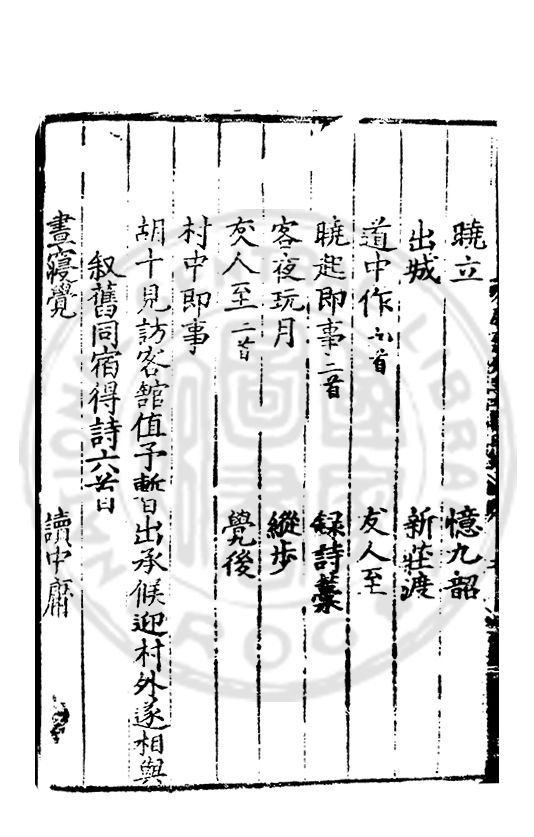 曉立 憶九韶
出城 新莊渡
道中作六首 友人至
曉起即事二首 録詩藁
客夜玩月 縱步
友人至二首 覺後
村中即事
胡十見訪客舘值予暫出承候迎村外遂相與
叙舊同宿得詩六首
晝寢覺 讀中庸